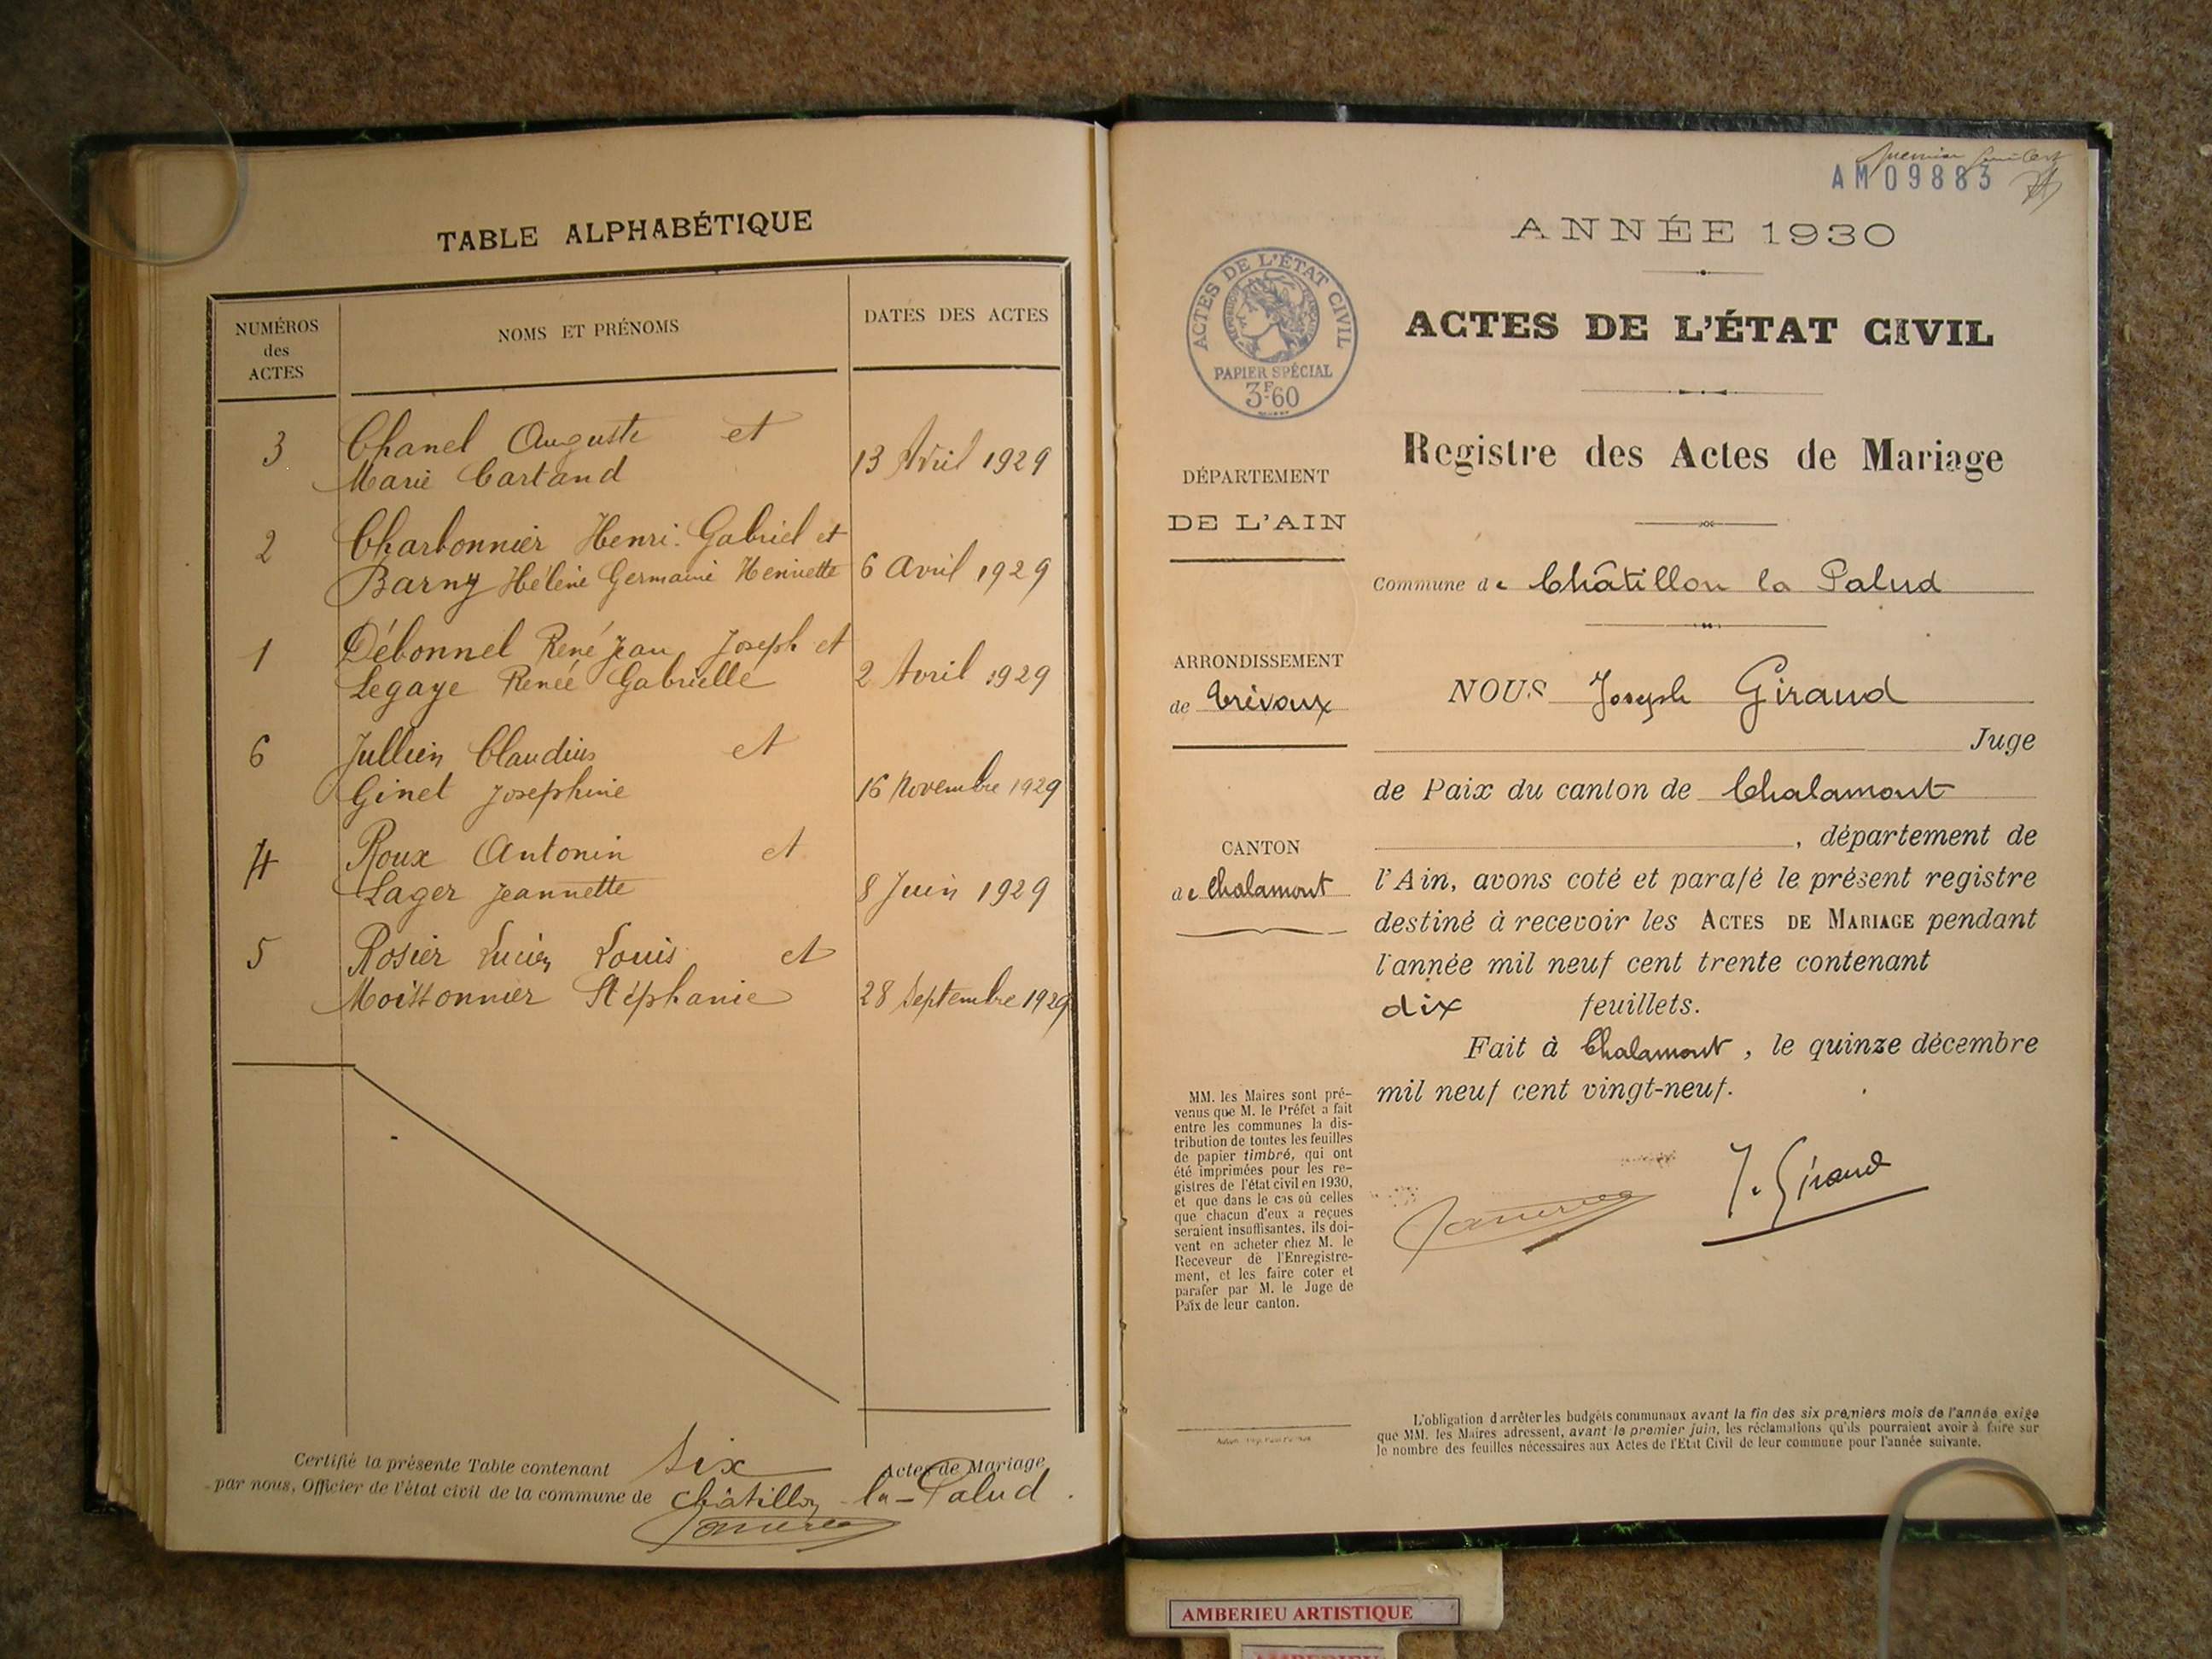 TABLE ALPHABÉTIQUE
NUMÉROS
des
ACTES
NOMS ET PRÉNOMS
DATES DES ACTES
3 Chanel Auguste et
Marie Cartand 13 Avril 1929
2 Charbonnier Henri Gabriel et
Barny Hélène Germaine Henriette 6 Avril 1929
1 Débonnel René Jean Joseph et
Legaye Renée Gabrielle 2 Avril 1929
6 Jullien Claudius et
Ginet Josephine 16 Novembre 1929
4 Roux Antonin et
Lager Jeannette 8 Juin 1929
5 Rosier Lucien Louis et
Moissonnier Stéphanie 28 Septembre 1929
Certifié la présente Table contenant six Actes de Mariage
par nous, Officier de l'état civil de la commune de Châtillon la-Palud.
premier
AM09883
ANNÉE 1930
ACTES DE L'ÉTAT CIVIL
PAPIER SPÉCIAL
3F60
ACTES DE L'ÉTAT CIVIL
Registre des Actes de Mariage
DÉPARTEMENT
DE L'AIN
Commune de Châtillon la Palud
ARRONDISSEMENT
de Trévoux
CANTON
de Chalamont
NOUS Joseph Giraud
Juge
de Paix du canton de Chalamont
, département de
l'Ain, avons coté et parafé le présent registre
destiné à recevoir les ACTES DE MARIAGE pendant
l'année mil neuf cent trente contenant
dix feuillets.
Fait à Chalamont, le quinze décembre
mil neuf cent vingt-neuf.
J. Giraud
MM. les Maires sont pré-
venus que M. le Préfet a fait
entre les communes la dis-
tribution de toutes les feuilles
de papier timbré, qui ont
été imprimées pour les re-
gistres de l'état civil en 1930,
et que dans le cas où celles
que chacun d'eux a reçues
seraient insuffisantes, ils doi-
vent en acheter chez M. le
Receveur de l'Enregistre-
ment, et les faire coter et
parafer par M. le Juge de
Paix de leur canton.
L'obligation d'arrêter les budgets communaux avant la fin des six premiers mois de l'année exige
que MM. les Maires adressent, avant le premier juin, les réclamations qu'ils pourraient avoir à faire sur
le nombre des feuilles nécessaires aux Actes de l'Etat Civil de leur commune pour l'année suivante.
AMBERIEU ARTISTIQUE
AMBERIEU